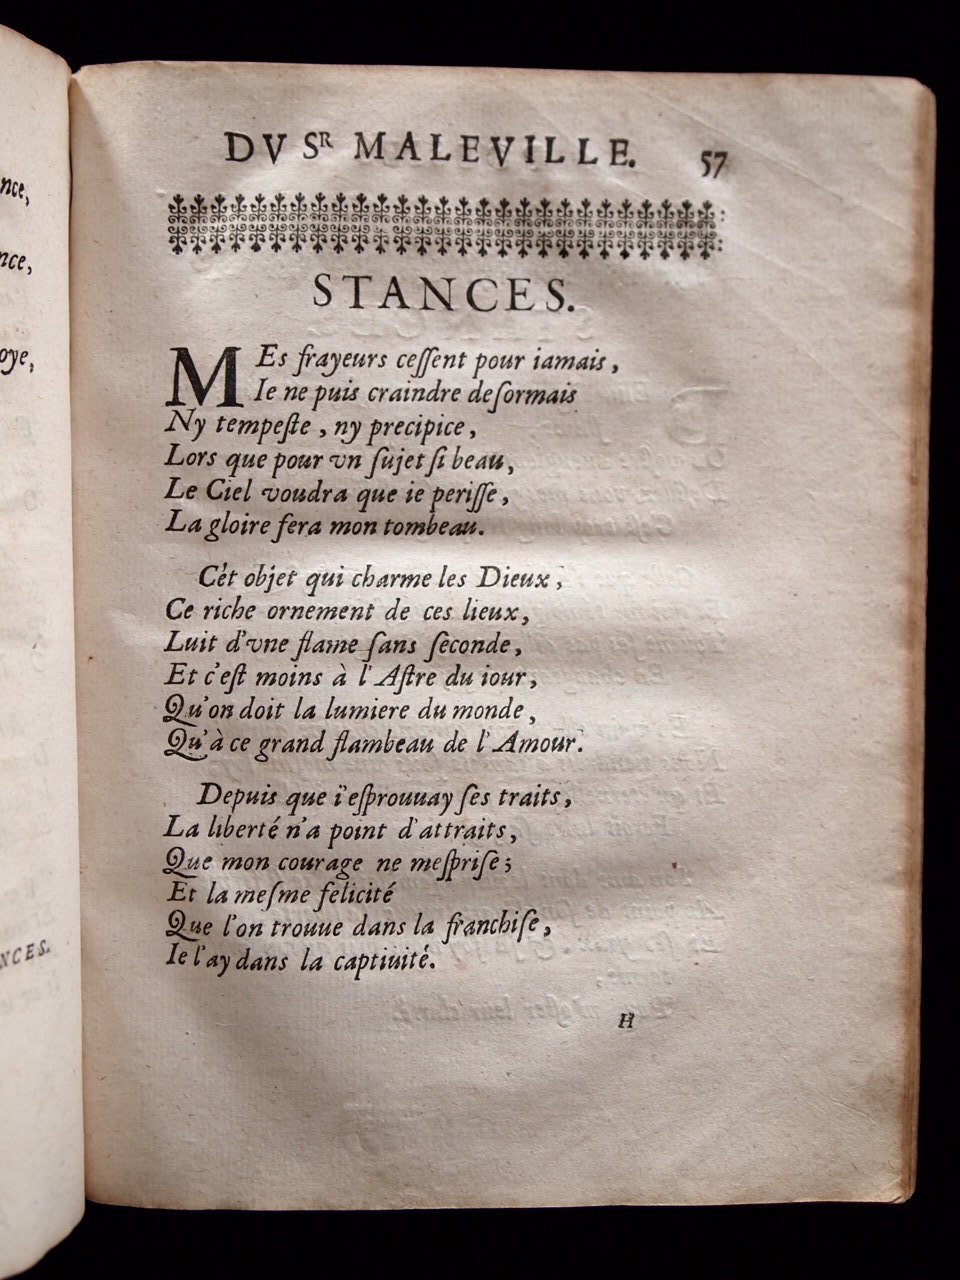 nce,
nce,
oye,
NCES.
DV SR MALEVILLE. 57
STANCES.
MEs frayeurs ceſſent pour iamais,
Ie ne puis craindre deſormais
Ny tempeſte, ny precipice,
Lors que pour vn ſujet ſi beau,
Le Ciel voudra que ie periſſe,
La gloire ſera mon tombeau.
Cét objet qui charme les Dieux,
Ce riche ornement de ces lieux,
Luit d'vne flame ſans ſeconde,
Et c'eſt moins à l'Aſtre du iour,
Qu'on doit la lumiere du monde,
Qu'à ce grand flambeau de l'Amour.
Depuis que i'eſprouuay ſes traits,
La liberté n'a point d'attraits,
Que mon courage ne meſpriſe;
Et la meſme felicité
Que l'on trouue dans la franchiſe,
Ie l'ay dans la captiuité.
H